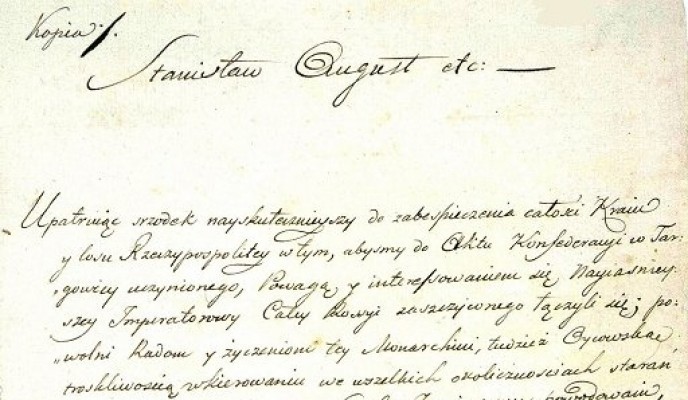 Kopia /.
Stanisław August etc: —
Upatruiąc srzodek nayskutecznieyszy do zabespieczenia całości Kraiu
y losu Rzeczypospolitey w tym, abysmy do Aktu Konfederacyi w Tar-
„gowicy uczynionego, Powagą y interessowaniem się Nayiaśniey-
szey Imperatorowy Całey Rossyi zaszczyconego łączyli się; po-
„wolni Radom y życzeniom tey Monarchini, tudzież Oycowską
troskliwością w kierowaniu we wszelkich okolicznościach starań
powodowani,